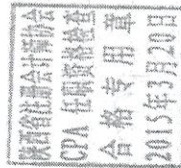 注册会计师协会
CPA 任职资格检查
合格专用章
2015年3月20日